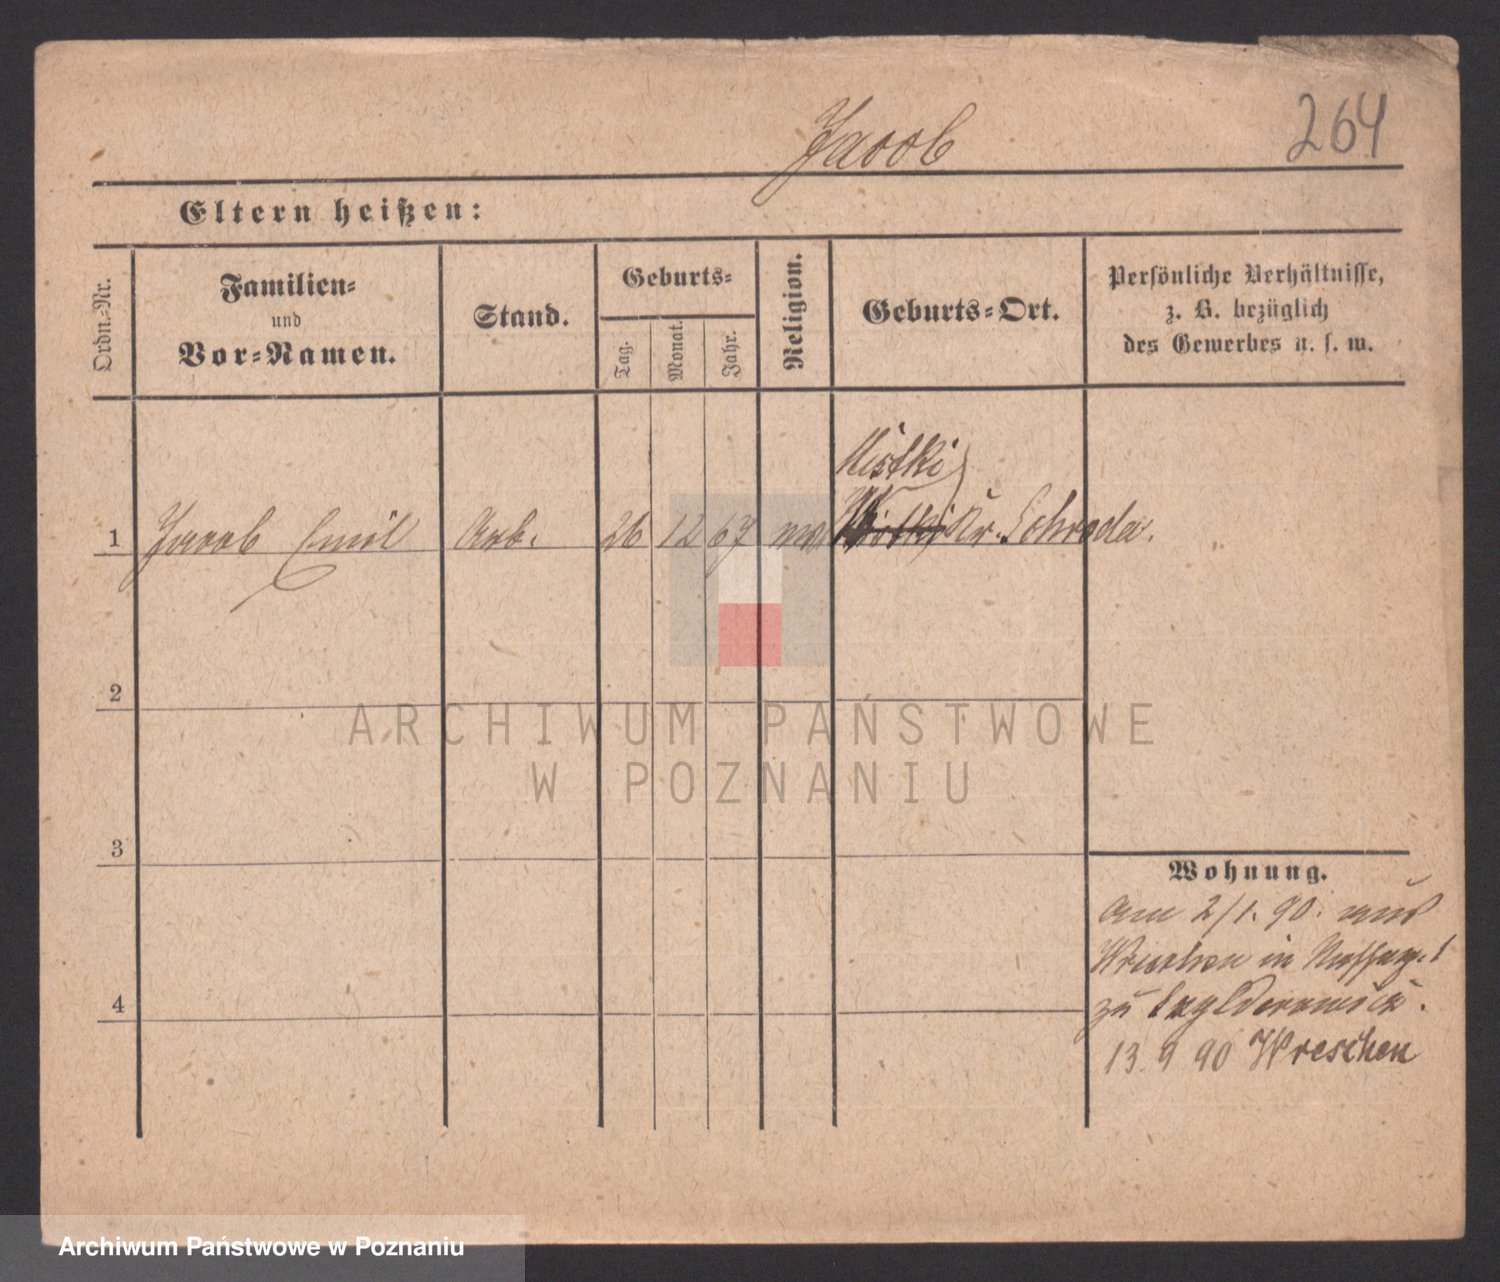 Jacob
264
Eltern heißen:
Ordn.-Nr.
Familien-
und
Vor-Namen.
Stand.
Geburts-
Tag.
Monat.
Jahr.
Religion.
Geburts-Ort.
Persönliche Verhältnisse,
z. B. bezüglich
des Gewerbes u. s. w.
1
Jacob Emil
Arb.
26
12
67
Kr. Schroda.
2
3
4
ARCHIWUM PAŃSTWOWE
W POZNANIU
Wohnung.
Am 2/1. 90. aus
Wreschen in
zu
13. 9 90 Wreschen
Archiwum Państwowe w Poznaniu